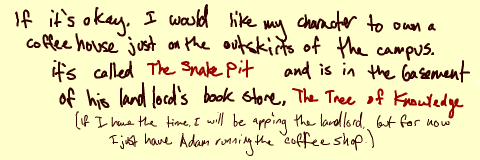 If it's okay. I would like my character to own a
coffee house just on the outskirts of the campus.
it's called The Snake Pit and is in the basement
of his landlord's book store, The Tree of Knowledge
(if I have the time, I will be apping the landlord, but for now
I just have Adam running the coffee shop.)